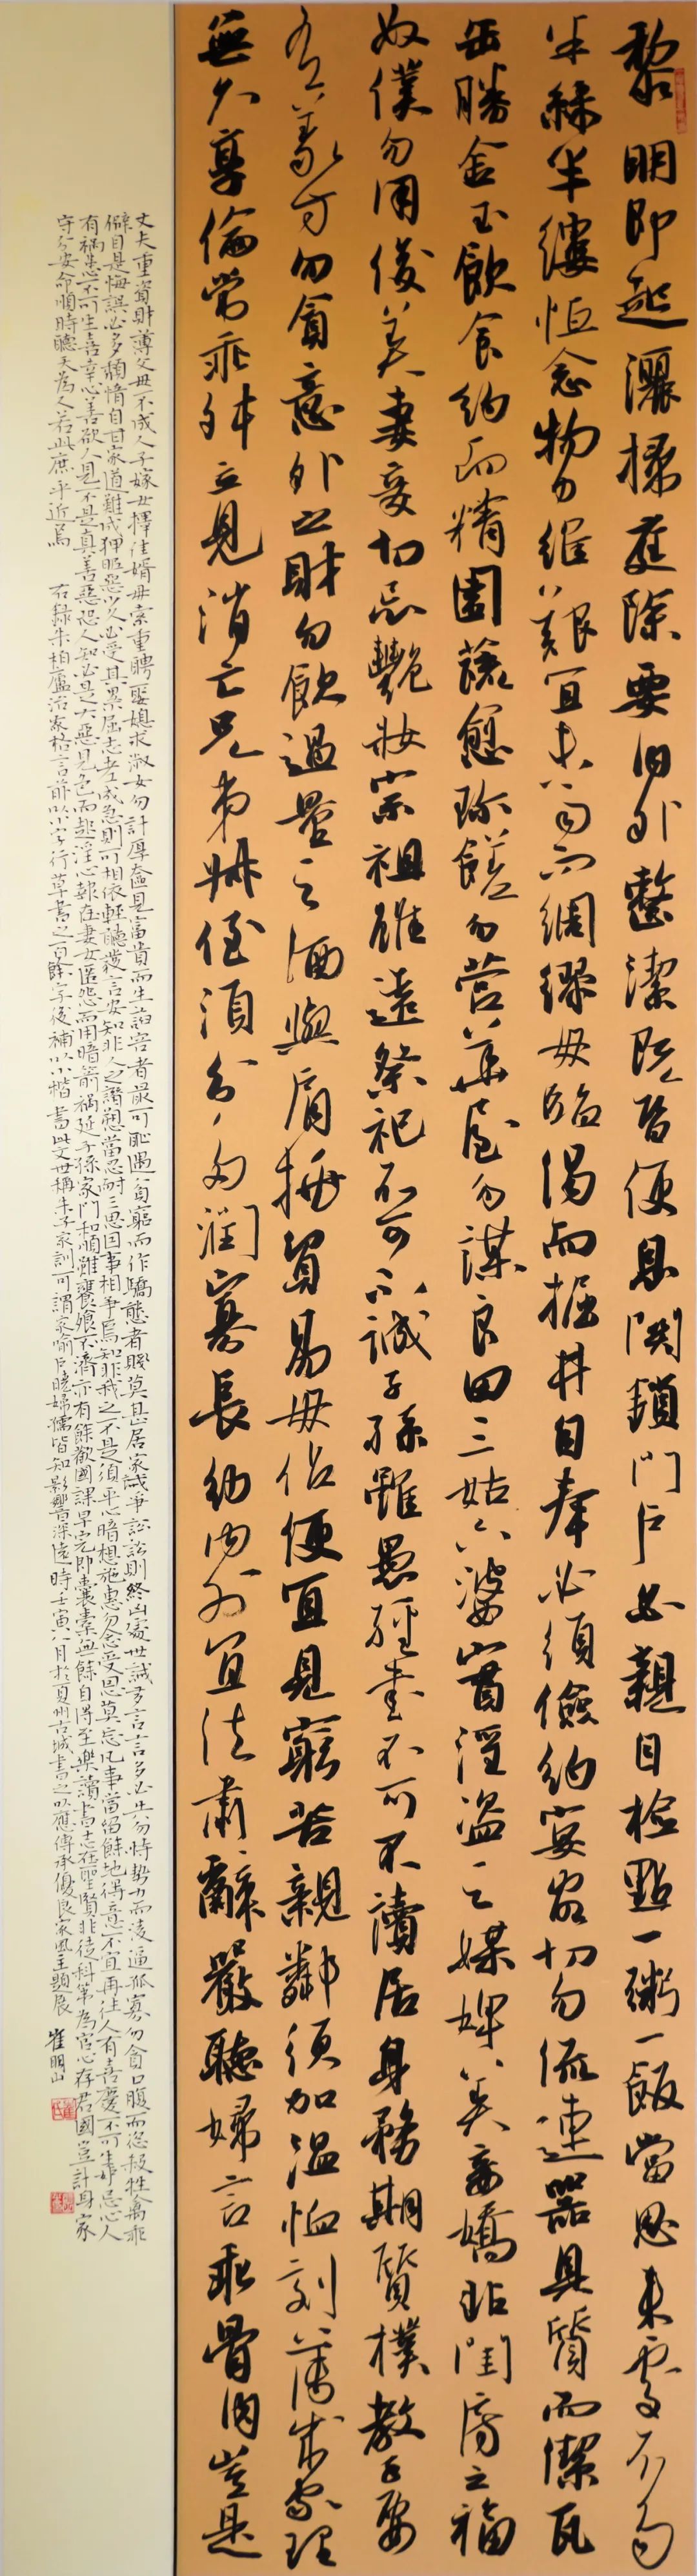 黎明即起灑掃庭除要內外整潔既昏便息關鎖門戶必親自檢點一粥一飯當思來處不易
半絲半縷恒念物力維艱宜未雨而綢繆毋臨渴而掘井自奉必須儉約宴客切勿流連器具質而潔瓦
缶勝金玉飲食約而精園蔬愈珍饈勿營華屋勿謀良田三姑六婆實淫盜之媒婢美妾嬌非閨房之福
奴僕勿用俊美妻妾切忌艷妝宗祖雖遠祭祀不可不誠子孫雖愚經書不可不讀居身務期質樸教子要
有義方勿貪意外之財勿飲過量之酒與肩挑貿易毋佔便宜見窮苦親鄰須加溫恤刻薄成家理
無久享倫常乖舛立見消亡兄弟叔侄須分多潤寡長幼內外宜法肅辭嚴聽婦言乖骨肉豈是
丈夫重資財薄父母不成人子嫁女擇佳婿毋索重聘娶媳求淑女勿計厚奩見富貴而生諂容者最可恥遇貧窮而作驕態者賤莫甚居家戒爭訟訟則終凶處世誡多言言多必失勿恃勢力而凌逼孤寡勿貪口腹而恣殺牲禽乖
僻自是悔誤必多頹惰自甘家道難成狎暱惡少久必受其累屈志老成急則可相依輕聽發言安知非人之譖愬當忍耐三思因事相爭焉知非我之不是須平心暗想施惠勿念受恩莫忘凡事當留餘地得意不宜再往人有喜慶不可生妒忌心人
有禍患不可生喜幸心善欲人見不是真善惡恐人知必是大惡見色而起淫心報在妻女匿怨而用暗箭禍延子孫家門和順雖饔飧不濟亦有餘歡國課早完即囊橐無餘自得至樂讀書志在聖賢非徒科第為官心存君國豈計身家
守分安命順時聽天為人若此庶乎近焉 右錄朱柏廬治家格言前以小字行草書之百餘字後補以小楷書此文世稱朱子家訓可謂家喻戶曉婦孺皆知影響深遠時壬寅八月於夏州古城書之以應傳承優良家風主題展 崔明山